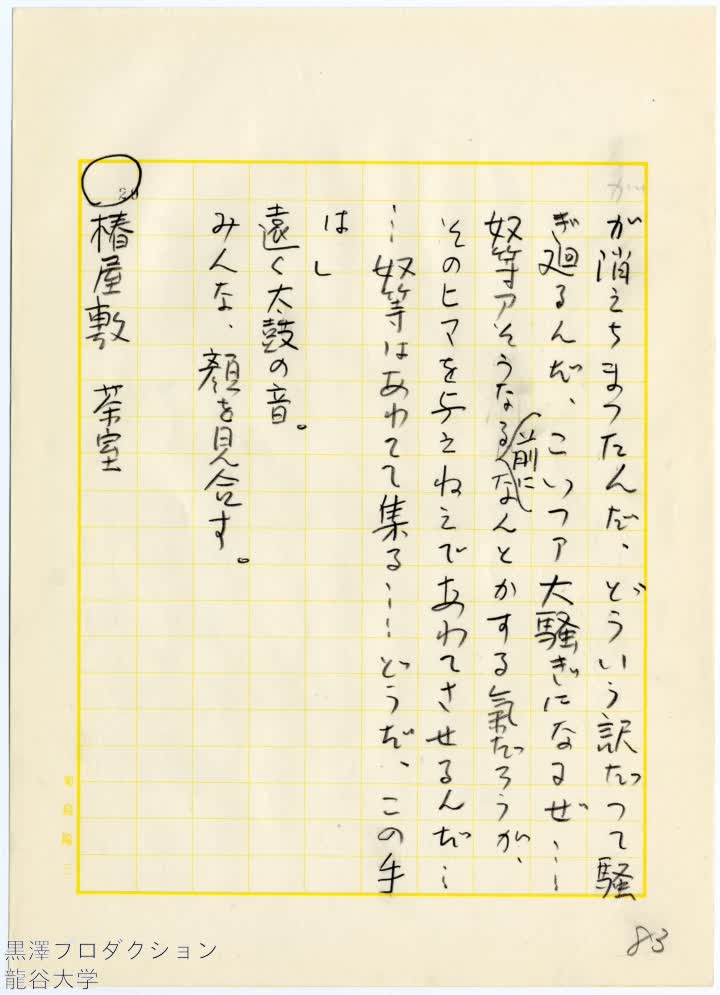 が消えちまつたんだ、どういう訳だつて騒
ぎ廻るんだ、こいつア大騒ぎになるぜ……
奴等アそうなる前になんとかする氣だろうが、
そのヒマを与えねえであわてさせるんだ…
…奴等はあわてて集る……どうだ、この手
は」
遠く太鼓の音。
みんな、顔を見合す。
椿屋敷　茶室
83
黒澤プロダクション
龍谷大学